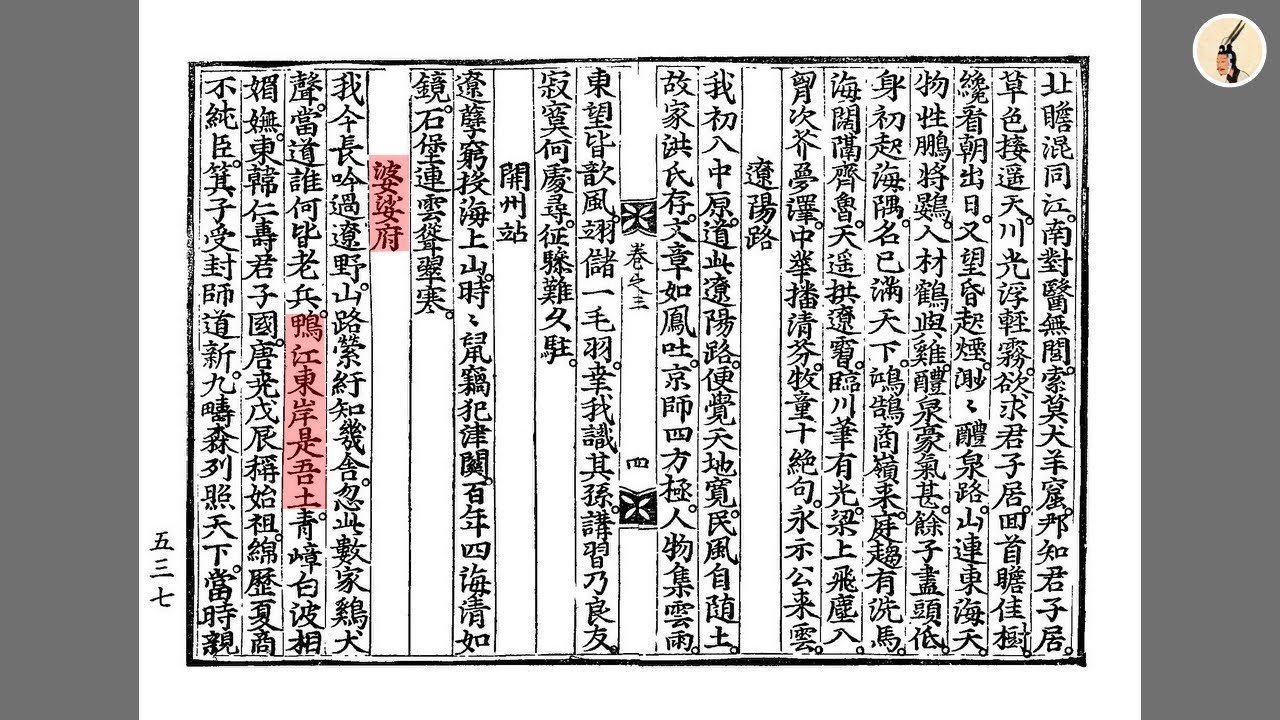 北瞻混同江。南對醫無閭。索莫犬羊窟。那知君子居。
草色接遥天。川光浮輕霧。欲求君子居。回首瞻佳樹。
纔看朝出日。又望昏起煙。渺〻醴泉路。山連東海天。
物性鵬將鷃。人材鶴與雞。醴泉豪氣甚。餘子盡頭低。
身初起海隅。名已滿天下。鴻鵠商嶺來。庭趨有洗馬。
海闊隔齊魯。天遥拱遼霫。臨川筆有光。梁上飛塵入。
胷次芥夢澤。中華播清芬。牧童十絶句。永示公来雲。
遼陽路
我初入中原。道此遼陽路。便覺天地寬。民風自随土。
故家洪氏存。文章如鳳吐。京師四方極。人物集雲雨。
卷之三
四
東望皆歆風。翊儲一毛羽。幸我識其孫。講習乃良友。
寂寞何處尋。征驂難久駐。
開州站
遼孽窮投海上山。時〻鼠竊犯津關。百年四海清如
鏡。石堡連雲聳翠寒。
婆娑府
我今長吟過遼野。山路縈紆知幾舍。忽此數家鷄犬
聲。當道誰何皆老兵。鴨江東岸是吾土。青嶂白波相
媚嫵。東韓仁壽君子國。唐尭戊辰稱始祖。綿歷夏商
不純臣。箕子受封師道新。九疇森列照天下。當時親
五三七